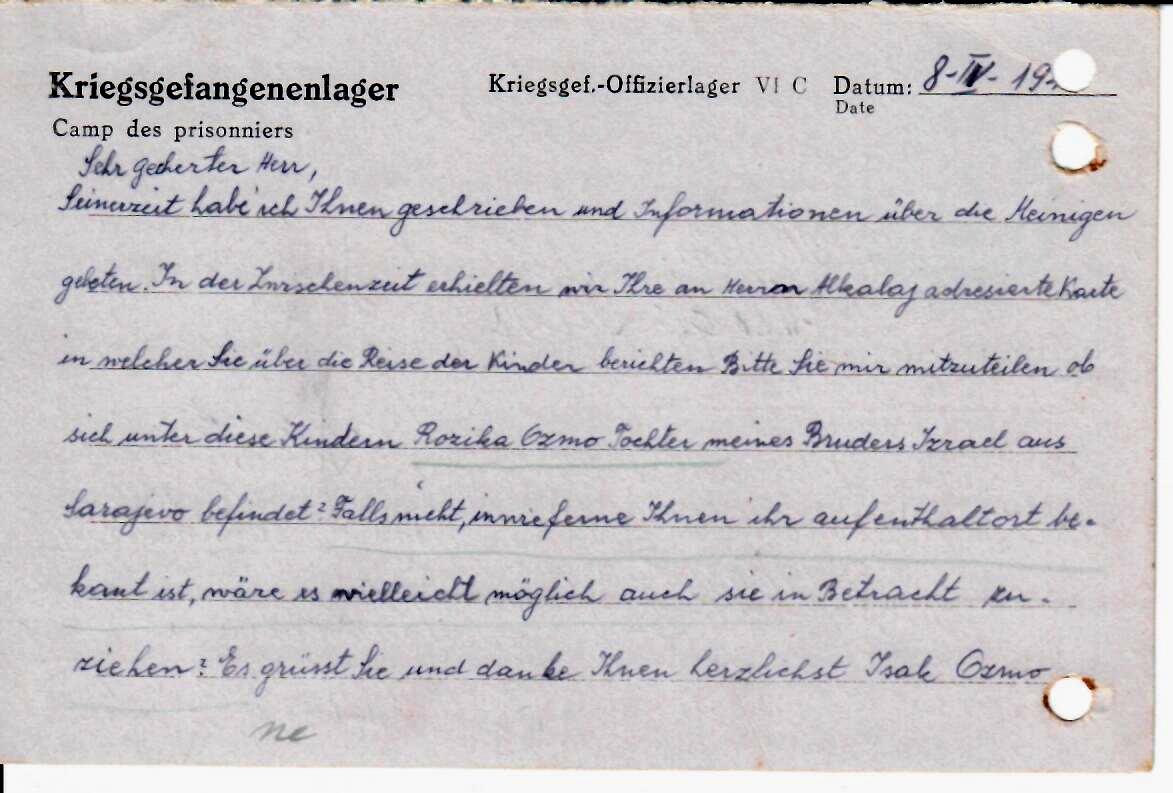 Kriegsgefangenenlager Kriegsgef.-Offizierlager VI C Datum: 8-IV-19
Camp des prisonniers Date
Sehr geeherter Herr,
Seinerzeit habe ich Ihnen geschrieben und Informationen über die Meinigen
gebeten. In der Zwischenzeit erhielten wir Ihre an Herrn Alkalaj adresierte Karte
in welcher Sie über die Reise der Kinder berichten Bitte Sie mir mitzuteilen ob
sich unter diese Kindern Rozika Ozmo Tochter meines Bruders Izrael aus
Sarajevo befindet? Falls nicht, inwieferne Ihnen ihr aufenthaltort be-
kant ist, wäre es vielleicht möglich auch sie in Betracht zu-
ziehen? Es grüsst Sie und danke Ihnen herzlichst Isak Ozmo
ne